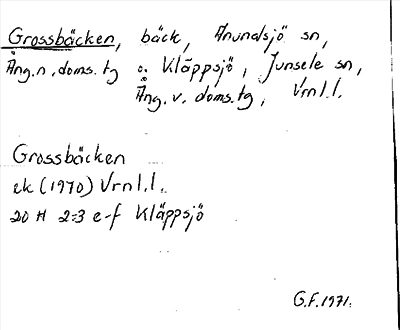 Grossbäcken, bäck, Anundsjö sn,
Ång.n.doms.tg o. Kläppsjö, Junsele sn,
Ång.v.doms.tg, Vrnl.l.
Grossbäcken
ek (1970) Vrnl.l.
20 H 2-3 e-f Kläppsjö
G.F.1971.